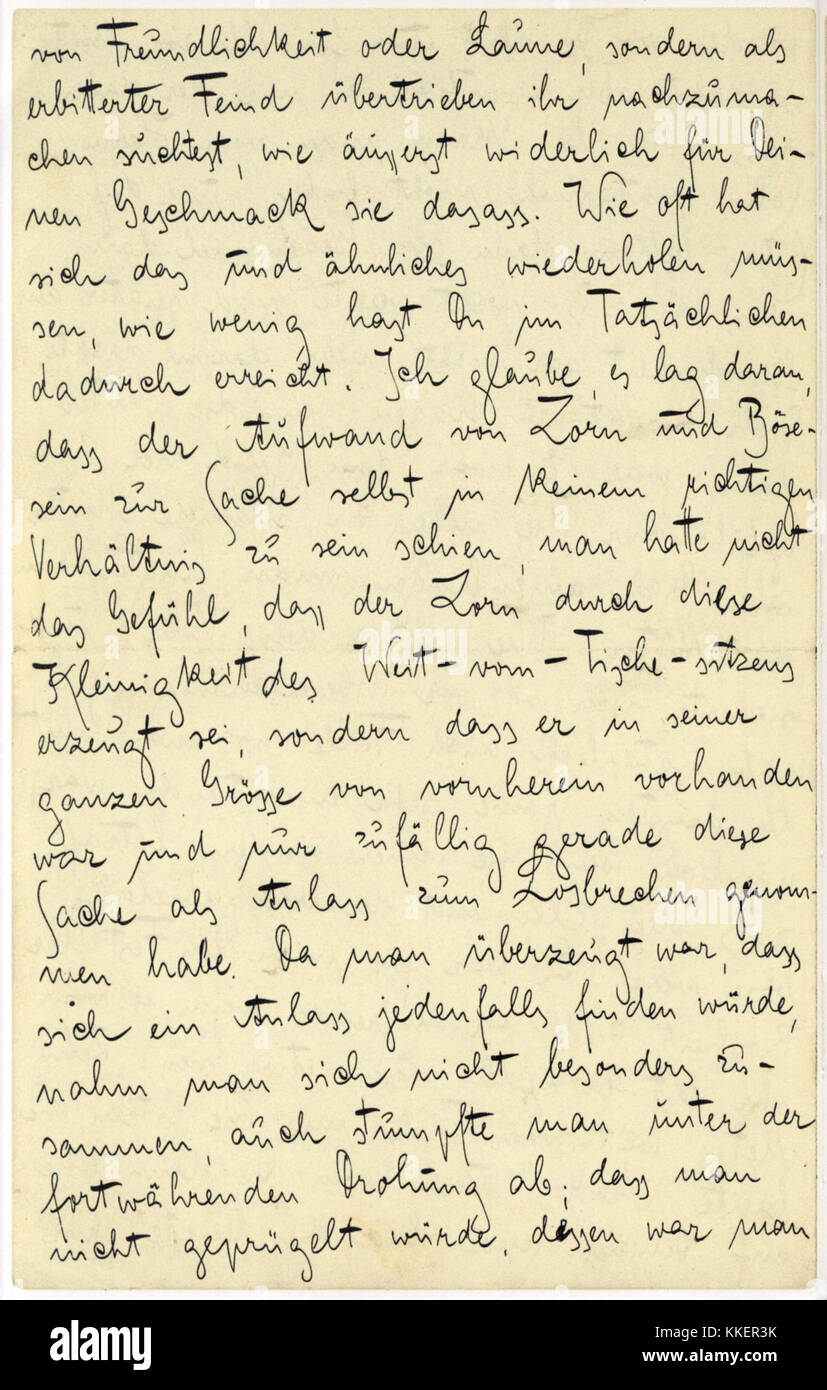 von Freundlichkeit oder Laune, sondern als
erbitterter Feind übertrieben ihr nachzuma-
chen suchtest, wie äusserst widerlich für Dei-
nen Geschmack sie dasass. Wie oft hat
sich das und ähnliches wiederholen müs-
sen, wie wenig hast Du im Tatsächlichen
dadurch erreicht. Ich glaube, es lag daran,
dass der Aufwand von Zorn und Böse-
sein zur Sache selbst in keinem richtigen
Verhältnis zu sein schien, man hatte nicht
das Gefühl, dass der Zorn durch diese
Kleinigkeit des Weit-vom-Tische-sitzens
erzeugt sei, sondern dass er in seiner
ganzen Grösse von vornherein vorhanden
war und nur zufällig gerade diese
Sache als Anlass zum Losbrechen genom-
men habe. Da man überzeugt war, dass
sich ein Anlass jedenfalls finden würde,
nahm man sich nicht besonders zu-
sammen, auch stumpfte man unter der
fortwährenden Drohung ab; dass man
nicht geprügelt würde, dessen war man
alamy
alamy
alamy
alamy
Image ID: KKER3K
www.alamy.com